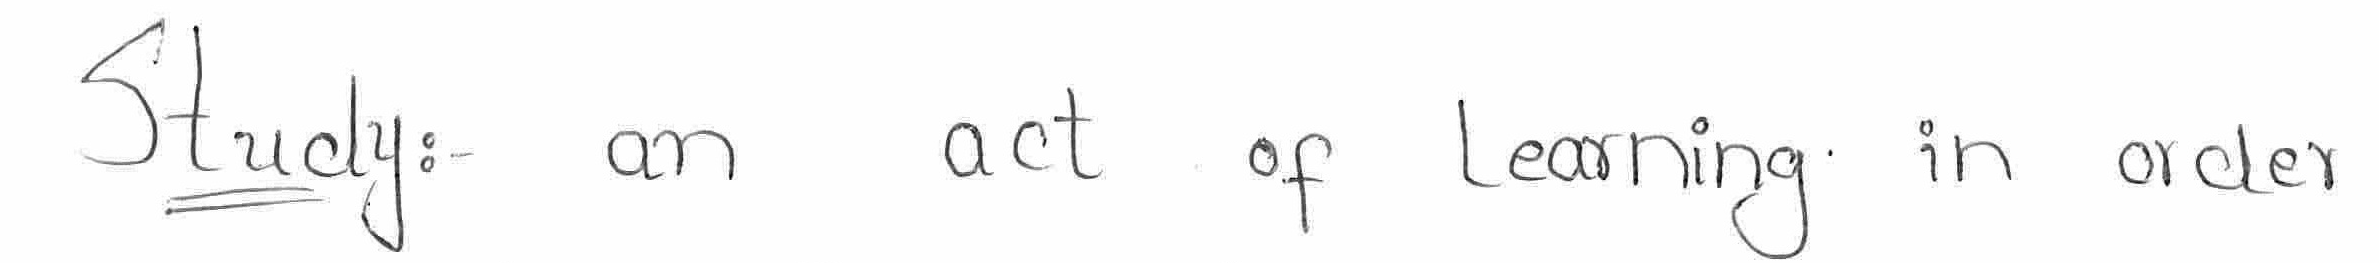 Study:- an act of Learning. in order